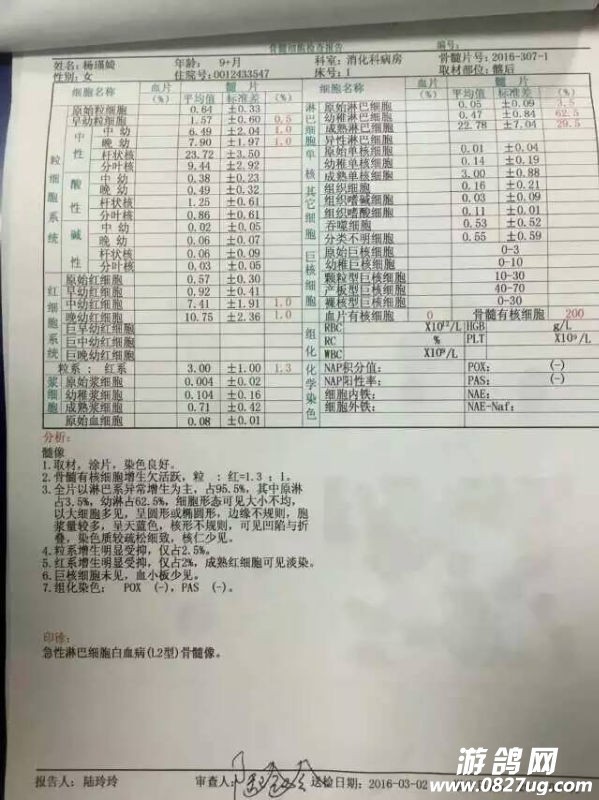 骨髓细胞检查报告 编号:
姓名: 杨瑾嫣 年龄: 9+月 科室: 消化科病房 骨髓片号: 2016-307-1
性别: 女 住院号: 0012433547 床号: 1 取材部位: 髂后
细胞名称 血片(%) 髓片 平均值 标准差 (%) 细胞名称 血片(%) 髓片 平均值 标准差 (%)
粒细胞系统
原始粒细胞 0.64 ±0.33
早幼粒细胞 1.57 ±0.60 0.5
中性 中幼 6.49 ±2.04 1.0
晚幼 7.90 ±1.97 1.0
杆状核 23.72 ±3.50
分叶核 9.44 ±2.92
酸性 中幼 0.38 ±0.23
晚幼 0.49 ±0.32
杆状核 1.25 ±0.61
分叶核 0.86 ±0.61
碱性 中幼 0.02 ±0.05
晚幼 0.06 ±0.07
杆状核 0.06 ±0.09
分叶核 0.03 ±0.05
红细胞系统
原始红细胞 0.57 ±0.30
早幼红细胞 0.92 ±0.41
中幼红细胞 7.41 ±1.91 1.0
晚幼红细胞 10.75 ±2.36 1.0
巨早幼红细胞
巨中幼红细胞
巨晚幼红细胞
粒系 : 红系 3.00 ±1.00 1.3
浆细胞
原始浆细胞 0.004 ±0.02
幼稚浆细胞 0.104 ±0.16
成熟浆细胞 0.71 ±0.42
原始血细胞 0.08 ±0.01
淋巴细胞
原始淋巴细胞 0.05 ±0.09 3.5
幼稚淋巴细胞 0.47 ±0.84 62.5
成熟淋巴细胞 22.78 ±7.04 29.5
异性淋巴细胞
单核
原始单核细胞 0.01 ±0.04
幼稚单核细胞 0.14 ±0.19
成熟单核细胞 3.00 ±0.88
其它细胞
组织细胞 0.16 ±0.21
组织嗜碱细胞 0.03 ±0.09
组织嗜酸细胞 0.11 ±0.01
吞噬细胞 0.53 ±0.52
分类不明细胞 0.55 ±0.59
巨核细胞
原始巨核细胞 0-3
幼稚巨核细胞 0-10
颗粒型巨核细胞 10-30
产板型巨核细胞 40-70
裸核型巨核细胞 0-30
血片有核细胞 0 骨髓有核细胞 200
组化
RBC X10¹²/L HGB g/L
RC % PLT X10⁹/L
WBC X10⁹/L
化学染色
NAP积分值: POX:
NAP阳性率: PAS:
细胞内铁: NAE:
细胞外铁: NAE-Naf:
分析:
髓像
1.取材,涂片,染色良好。
2.骨髓有核细胞增生欠活跃, 粒 : 红=1.3 : 1。
3.全片以淋巴系异常增生为主,占95.5%,其中原淋
占3.5%,幼淋占62.5%,细胞形态可见大小不均,
以大细胞多见,呈圆形或椭圆形,边缘不规则,胞
浆量较多,呈天蓝色,核形不规则,可见凹陷与折
叠,染色质较疏松细致,核仁少见。
4.粒系增生明显受抑,仅占2.5%。
5.红系增生明显受抑,仅占2%,成熟红细胞可见淡染。
6.巨核细胞未见,血小板少见。
7.组化染色: POX (-), PAS (-)。
印诊:
急性淋巴细胞白血病(L2型)骨髓像。
报告人: 陆玲玲 审查人: 送检日期: 2016-03-02
游鸽网
www.0827ug.com